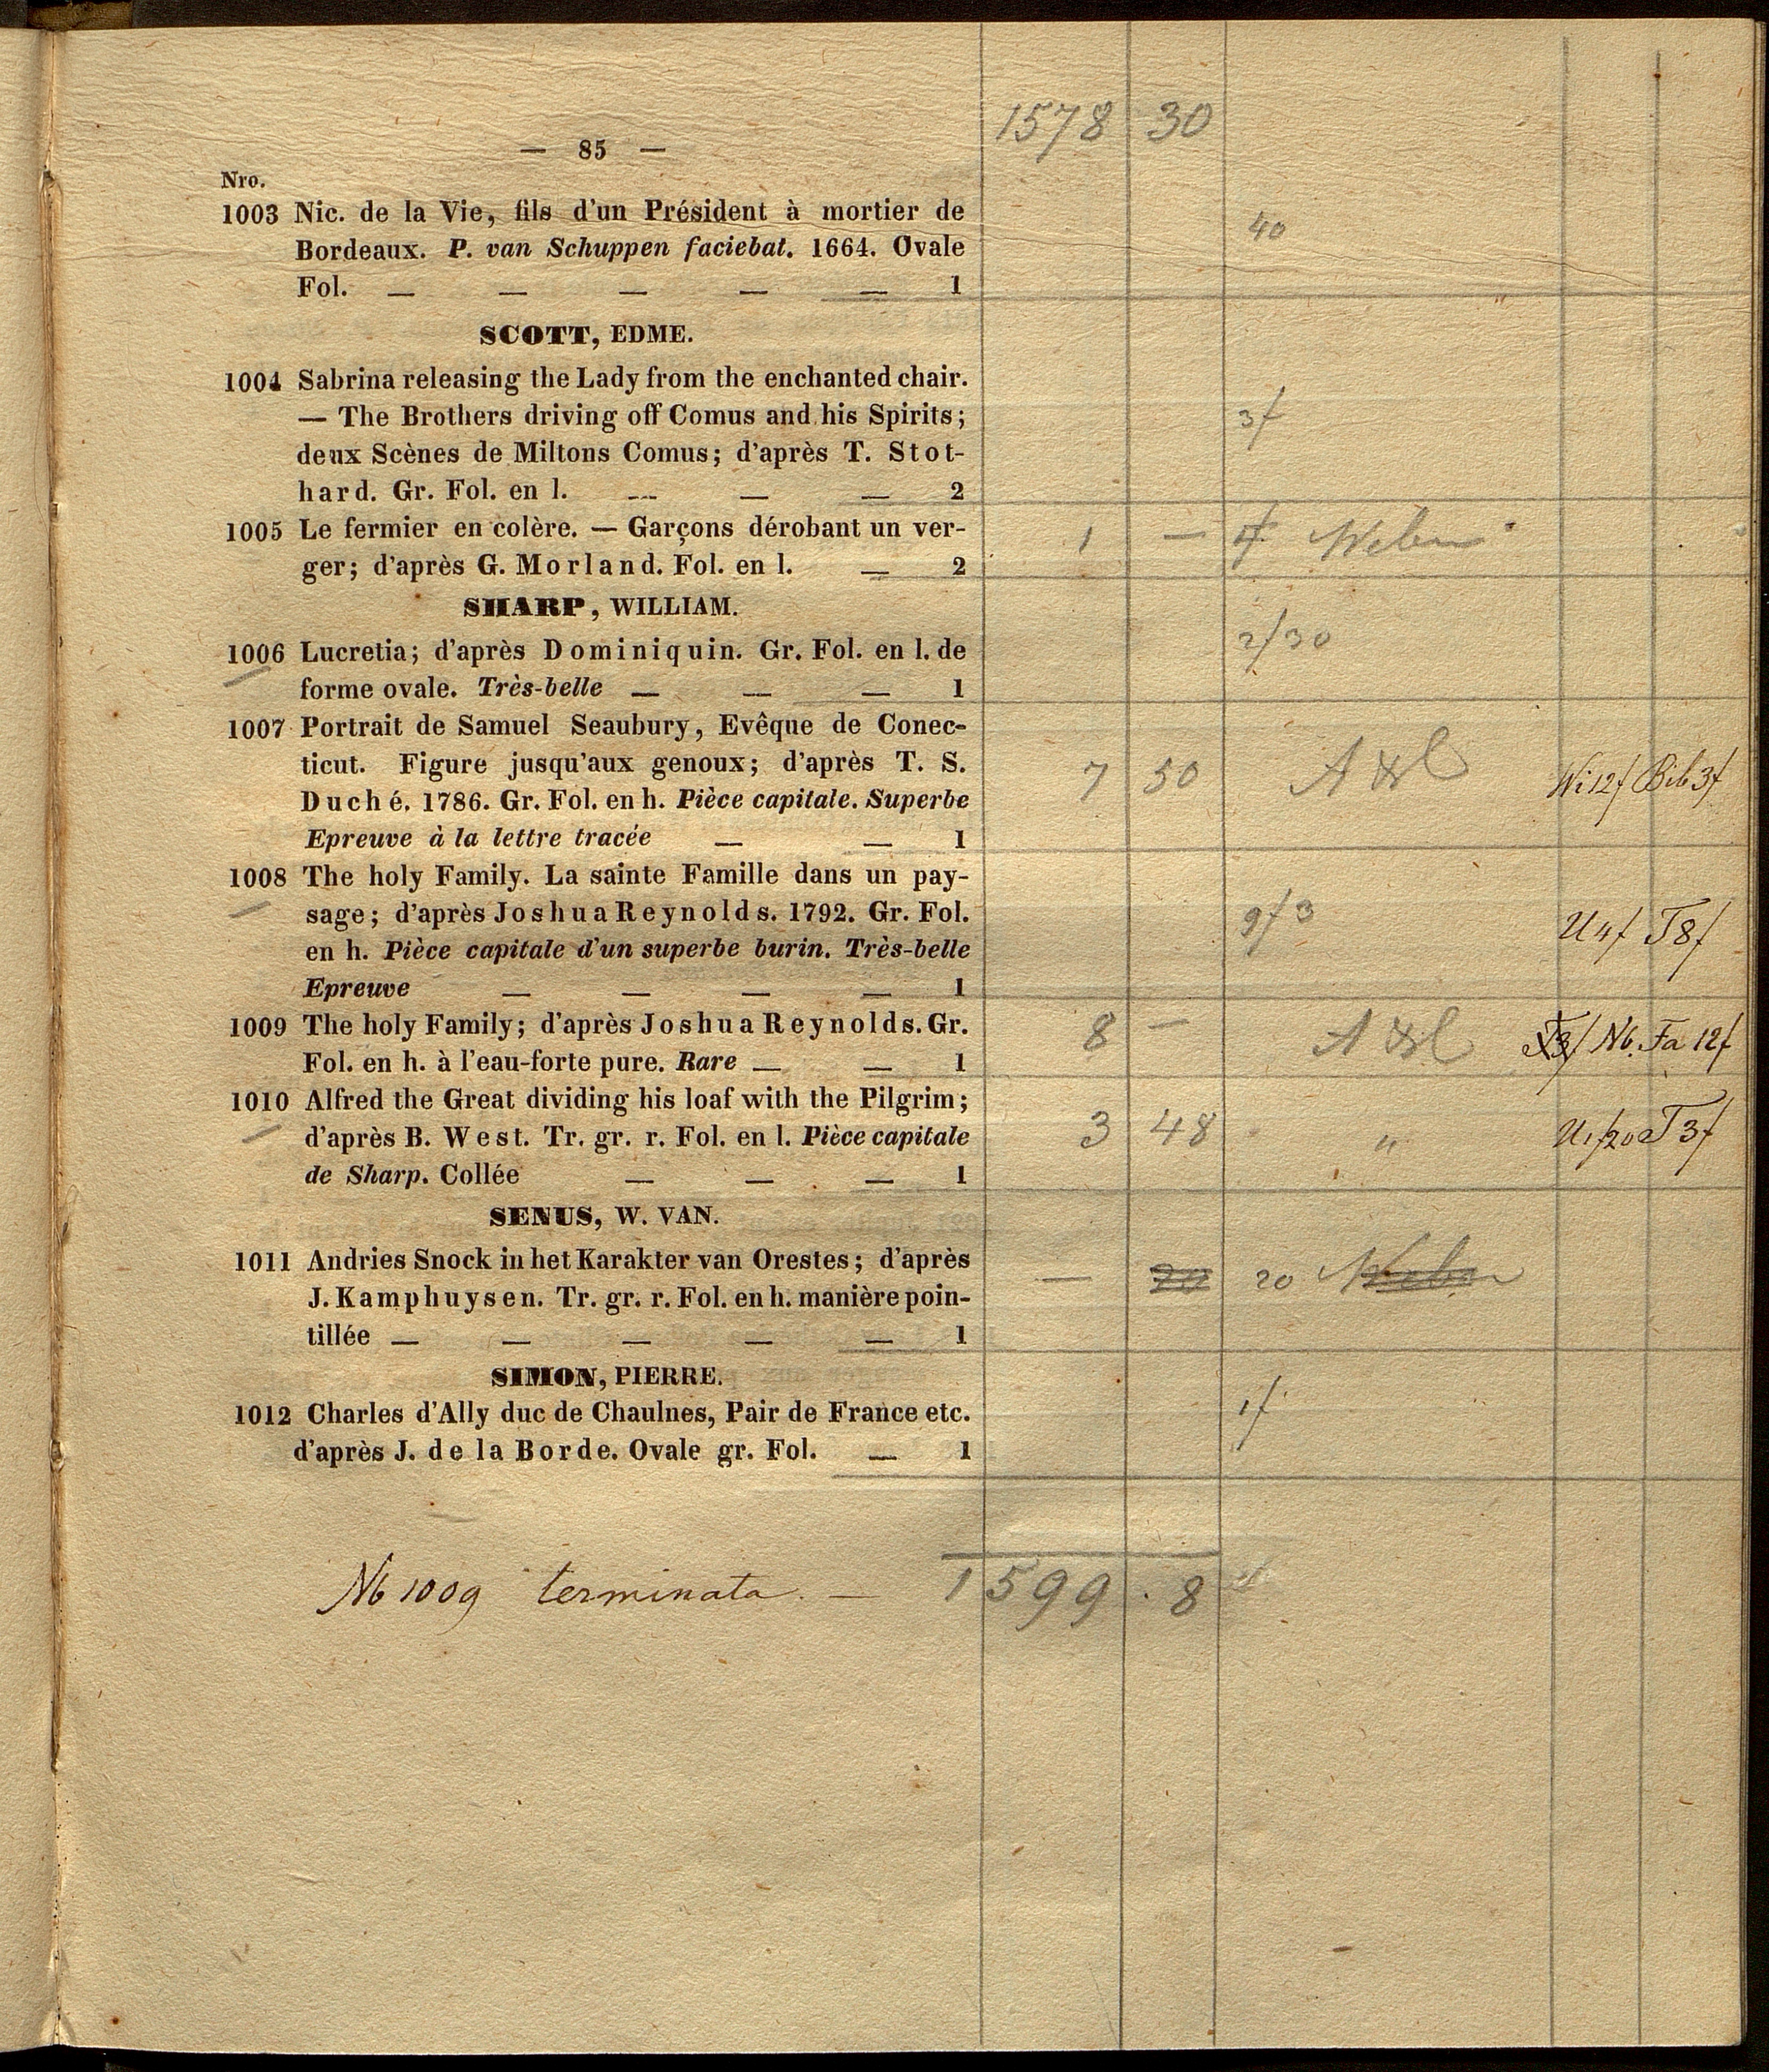 1578 30
— 85 —
Nro.
1003 Nic. de la Vie, fils d'un Président à mortier de
Bordeaux. P. van Schuppen faciebat. 1664. Ovale 40
Fol. — — — — — 1
SCOTT, EDME.
1004 Sabrina releasing the Lady from the enchanted chair.
— The Brothers driving off Comus and his Spirits; 3f
deux Scènes de Miltons Comus; d'après T. Stot-
hard. Gr. Fol. en l. — — — 2
1005 Le fermier en colère. — Garçons dérobant un ver- 1 — Weber
ger; d'après G. Morland. Fol. en l. — 2
SHARP, WILLIAM.
1006 Lucretia; d'après Dominiquin. Gr. Fol. en l. de 2f30
forme ovale. Très-belle — — — 1
1007 Portrait de Samuel Seaubury, Evêque de Conec-
ticut. Figure jusqu'aux genoux; d'après T. S. 7 50 Wi12f Bib3f
Duché. 1786. Gr. Fol. en h. Pièce capitale. Superbe
Epreuve à la lettre tracée — — 1
1008 The holy Family. La sainte Famille dans un pay-
sage; d'après Joshua Reynolds. 1792. Gr. Fol. 9f3 U4f T8f
en h. Pièce capitale d'un superbe burin. Très-belle
Epreuve — — — — 1
1009 The holy Family; d'après Joshua Reynolds. Gr. 8 — T3f Nb. Fa 12f
Fol. en h. à l'eau-forte pure. Rare — — 1
1010 Alfred the Great dividing his loaf with the Pilgrim;
d'après B. West. Tr. gr. r. Fol. en l. Pièce capitale 3 48 " U1f20 T3f
de Sharp. Collée — — — 1
SENUS, W. VAN.
1011 Andries Snock in het Karakter van Orestes; d'après — 20 20 Weber
J. Kamphuysen. Tr. gr. r. Fol. en h. manière poin-
tillée — — — — — 1
SIMON, PIERRE.
1012 Charles d'Ally duc de Chaulnes, Pair de France etc. 1f
d'après J. de la Borde. Ovale gr. Fol. — 1
Nb 1009 terminata. — 1599.8